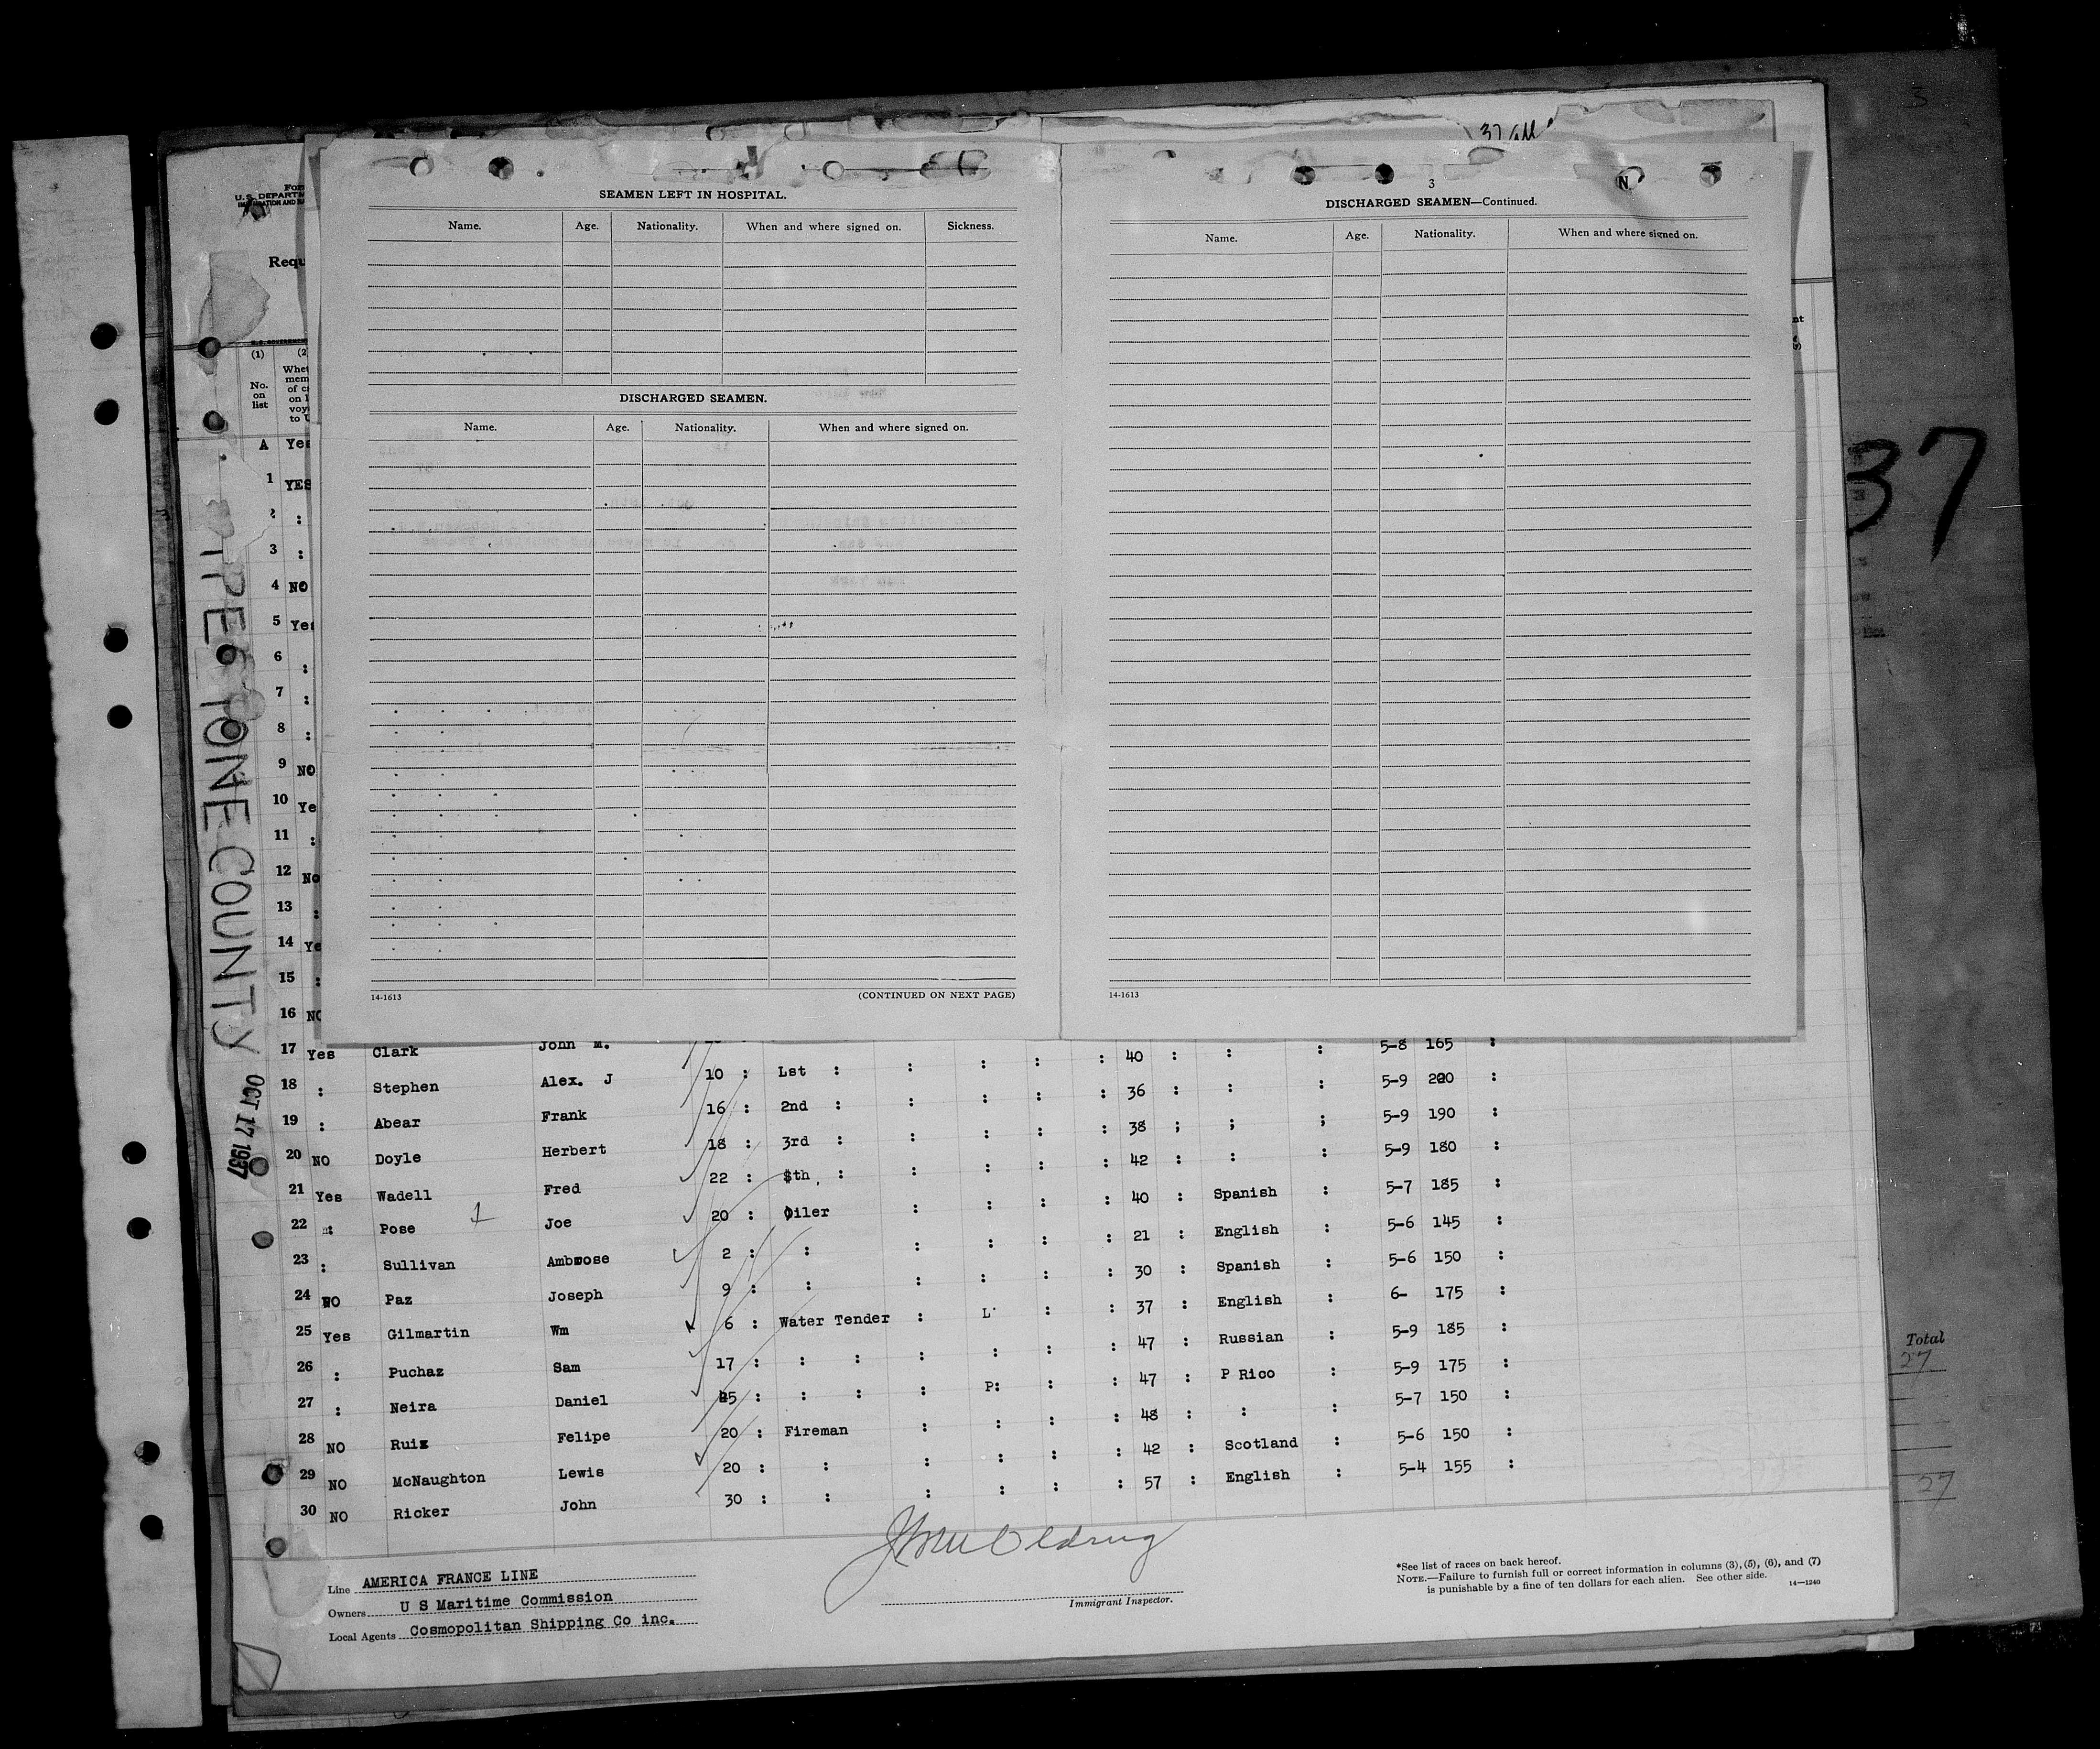 37
SEAMEN LEFT IN HOSPITAL.
Name. Age. Nationality. When and where signed on. Sickness.
DISCHARGED SEAMEN.
Name. Age. Nationality. When and where signed on.
14-1613 (CONTINUED ON NEXT PAGE)
3 N
DISCHARGED SEAMEN—Continued.
Name. Age. Nationality. When and where signed on.
14-1613
37
U.S. DEPARTM
Requ
(1) (2
No. on list
Whet
mem
of c
on l
voy
to U
A Yes
1 YES
2 :
3 :
4 NO
5 Yes
6 :
7 :
8 :
9 NO
10 Ye
11 :
12 No
13 :
14 Ye
15 :
16 NO
17 Yes Clark John M. : 40 : : : 5-8 165 :
18 : Stephen Alex. J 10 : Lst : : : : : 36 : : : 5-9 220 :
19 : Abear Frank 16 : 2nd : : : : : 38 ; ; ; 5-9 190 :
20 NO Doyle Herbert 18 : 3rd : : : : : 42 : : : 5-9 180 :
21 Yes Wadell Fred 22 : $th. : : : : : 40 : Spanish : 5-7 185 :
22 : Pose 1 Joe 20 : Oiler : : : : 21 : English : 5-6 145 :
23 : Sullivan Ambrose 2 : : : : : : 30 : Spanish : 5-6 150 :
24 NO Paz Joseph 9 : : : : : : 37 : English : 6- 175 :
25 Yes Gilmartin Wm 6 : Water Tender : L : : 47 : Russian : 5-9 185 :
26 : Puchaz Sam 17 : : : : : : : 47 : P Rico : 5-9 175 :
27 : Neira Daniel 45 : : : : P: : : 48 : : : 5-7 150 :
28 NO Ruiz Felipe 20 : Fireman : : : : 42 : Scotland : 5-6 150 :
29 NO McNaughton Lewis 20 : : : : : : 57 : English : 5-4 155 :
30 NO Ricker John 30 : : : : :
IPE TONE COUNTY
OCT 17 1937
Line AMERICA FRANCE LINE
Owners U S Maritime Commission
Local Agents Cosmopolitan Shipping Co inc.
Immigrant Inspector.
*See list of races on back hereof.
NOTE.—Failure to furnish full or correct information in columns (3), (5), (6), and (7)
is punishable by a fine of ten dollars for each alien. See other side. 14—1240
Total
27
27